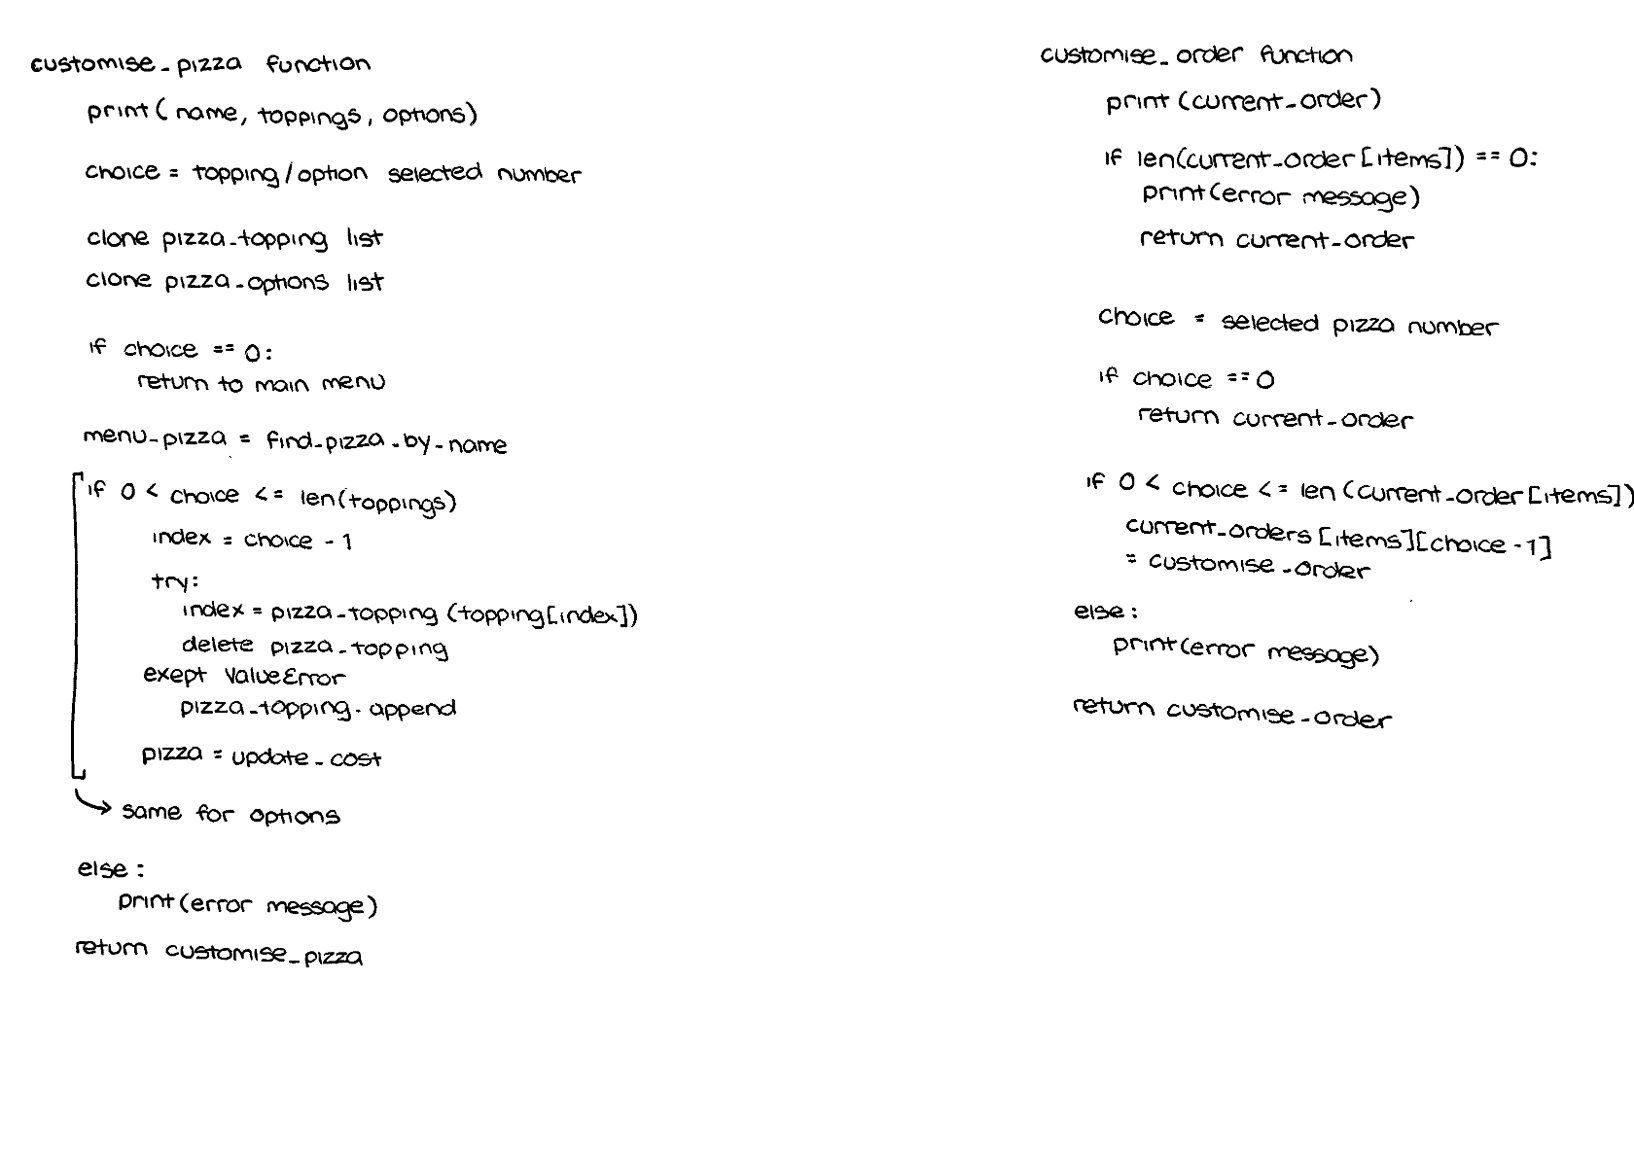 customise_pizza function
print(name, toppings, options)
choice = topping/option selected number
clone pizza_topping list
clone pizza_options list
if choice == 0:
return to main menu
menu_pizza = find_pizza_by_name
if 0 < choice <= len(toppings)
index = choice - 1
try:
index = pizza_topping (topping[index])
delete pizza_topping
exept ValueError
pizza_topping.append
pizza = update_cost
same for options
else:
print(error message)
return customise_pizza
customise_order function
print (current_order)
if len(current_order[items]) == 0:
print(error message)
return current_order
choice = selected pizza number
if choice == 0
return current_order
if 0 < choice <= len (current_order[items])
current_orders[items][choice - 1]
= customise_order
else:
print(error message)
return customise_order